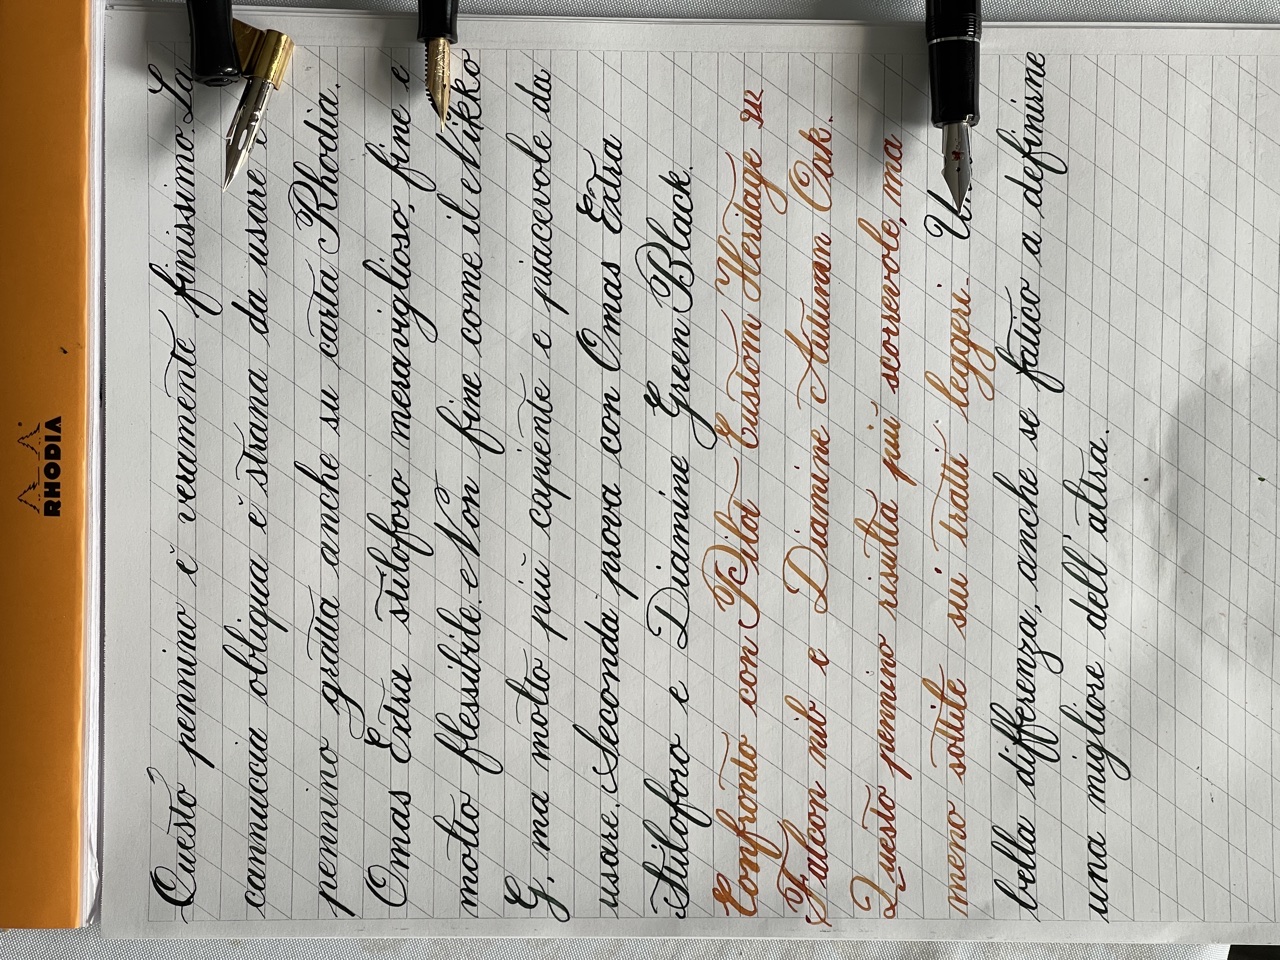 RHODIA
Questo pennino è veramente finissimo. La
cannuccia obliqua è strana da usare e
pennino gratta anche su carta Rhodia.
Omas Extra stiloforo meraviglioso, fine e
molto flessibile. Non fine come il Nikko
G, ma molto più capiente e piacevole da
usare. Seconda prova con Omas Extra
Stiloforo e Diamine Green Black.
Confronto con Pilot Custom Heritage
Falcon nib e Diamine Autumn Oak.
Questo pennino risulta più scorrevole, ma
meno sottile sui tratti leggeri.
bella differenza, anche se fatico a definirne
una migliore dell'altra.